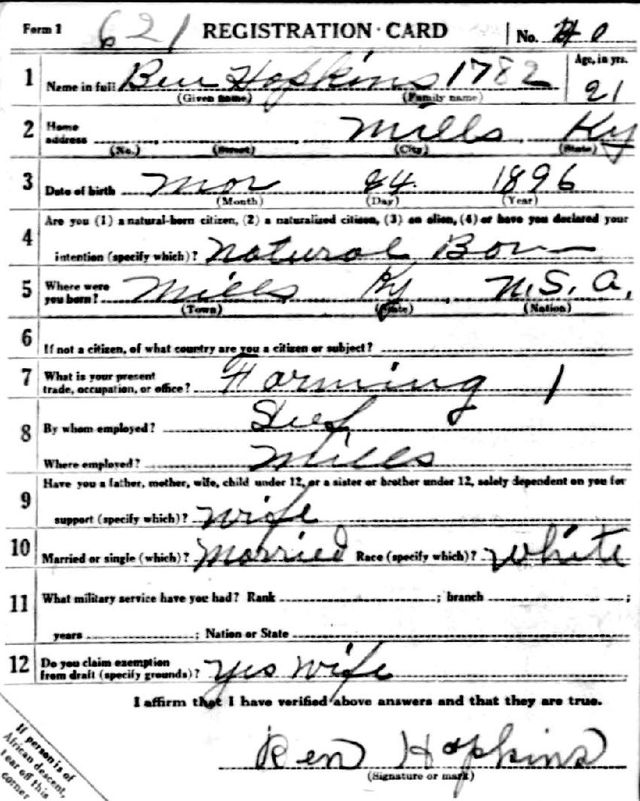 Form 1 621 REGISTRATION CARD No. 40
1 Name in full Ben Hopkins 1782 Age, in yrs.
(Given name) (Family name) 21
2 Home address Mills Ky
(No.) (Street) (City) (State)
3 Date of birth Mar 24 1896
(Month) (Day) (Year)
Are you (1) a natural-born citizen, (2) a naturalized citizen, (3) an alien, (4) or have you declared your
4 intention (specify which)? Natural Born
5 Where were you born? Mills Ky U.S.A.
(Town) (State) (Nation)
6 If not a citizen, of what country are you a citizen or subject?
7 What is your present trade, occupation, or office? Farming 1
8 By whom employed? Self
Where employed? Mills
9 Have you a father, mother, wife, child under 12, or a sister or brother under 12, solely dependent on you for
support (specify which)? wife
10 Married or single (which)? Married Race (specify which)? White
11 What military service have you had? Rank ; branch ;
years ; Nation or State
12 Do you claim exemption from draft (specify grounds)? Yes wife
I affirm that I have verified above answers and that they are true.
Ben Hopkins
(Signature or mark)
If person is of
African descent,
tear off this
corner